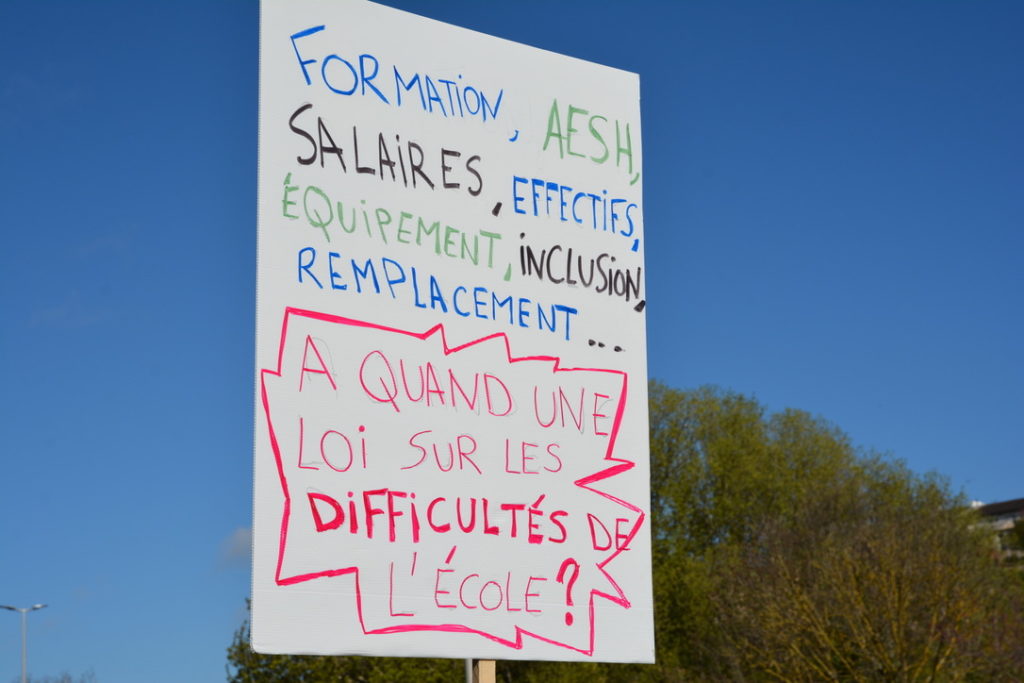 FORMATION, AESH,
SALAIRES, EFFECTIFS,
ÉQUIPEMENT, INCLUSION,
REMPLACEMENT ...
A QUAND UNE
LOI SUR LES
DIFFICULTÉS DE
L'ÉCOLE ?